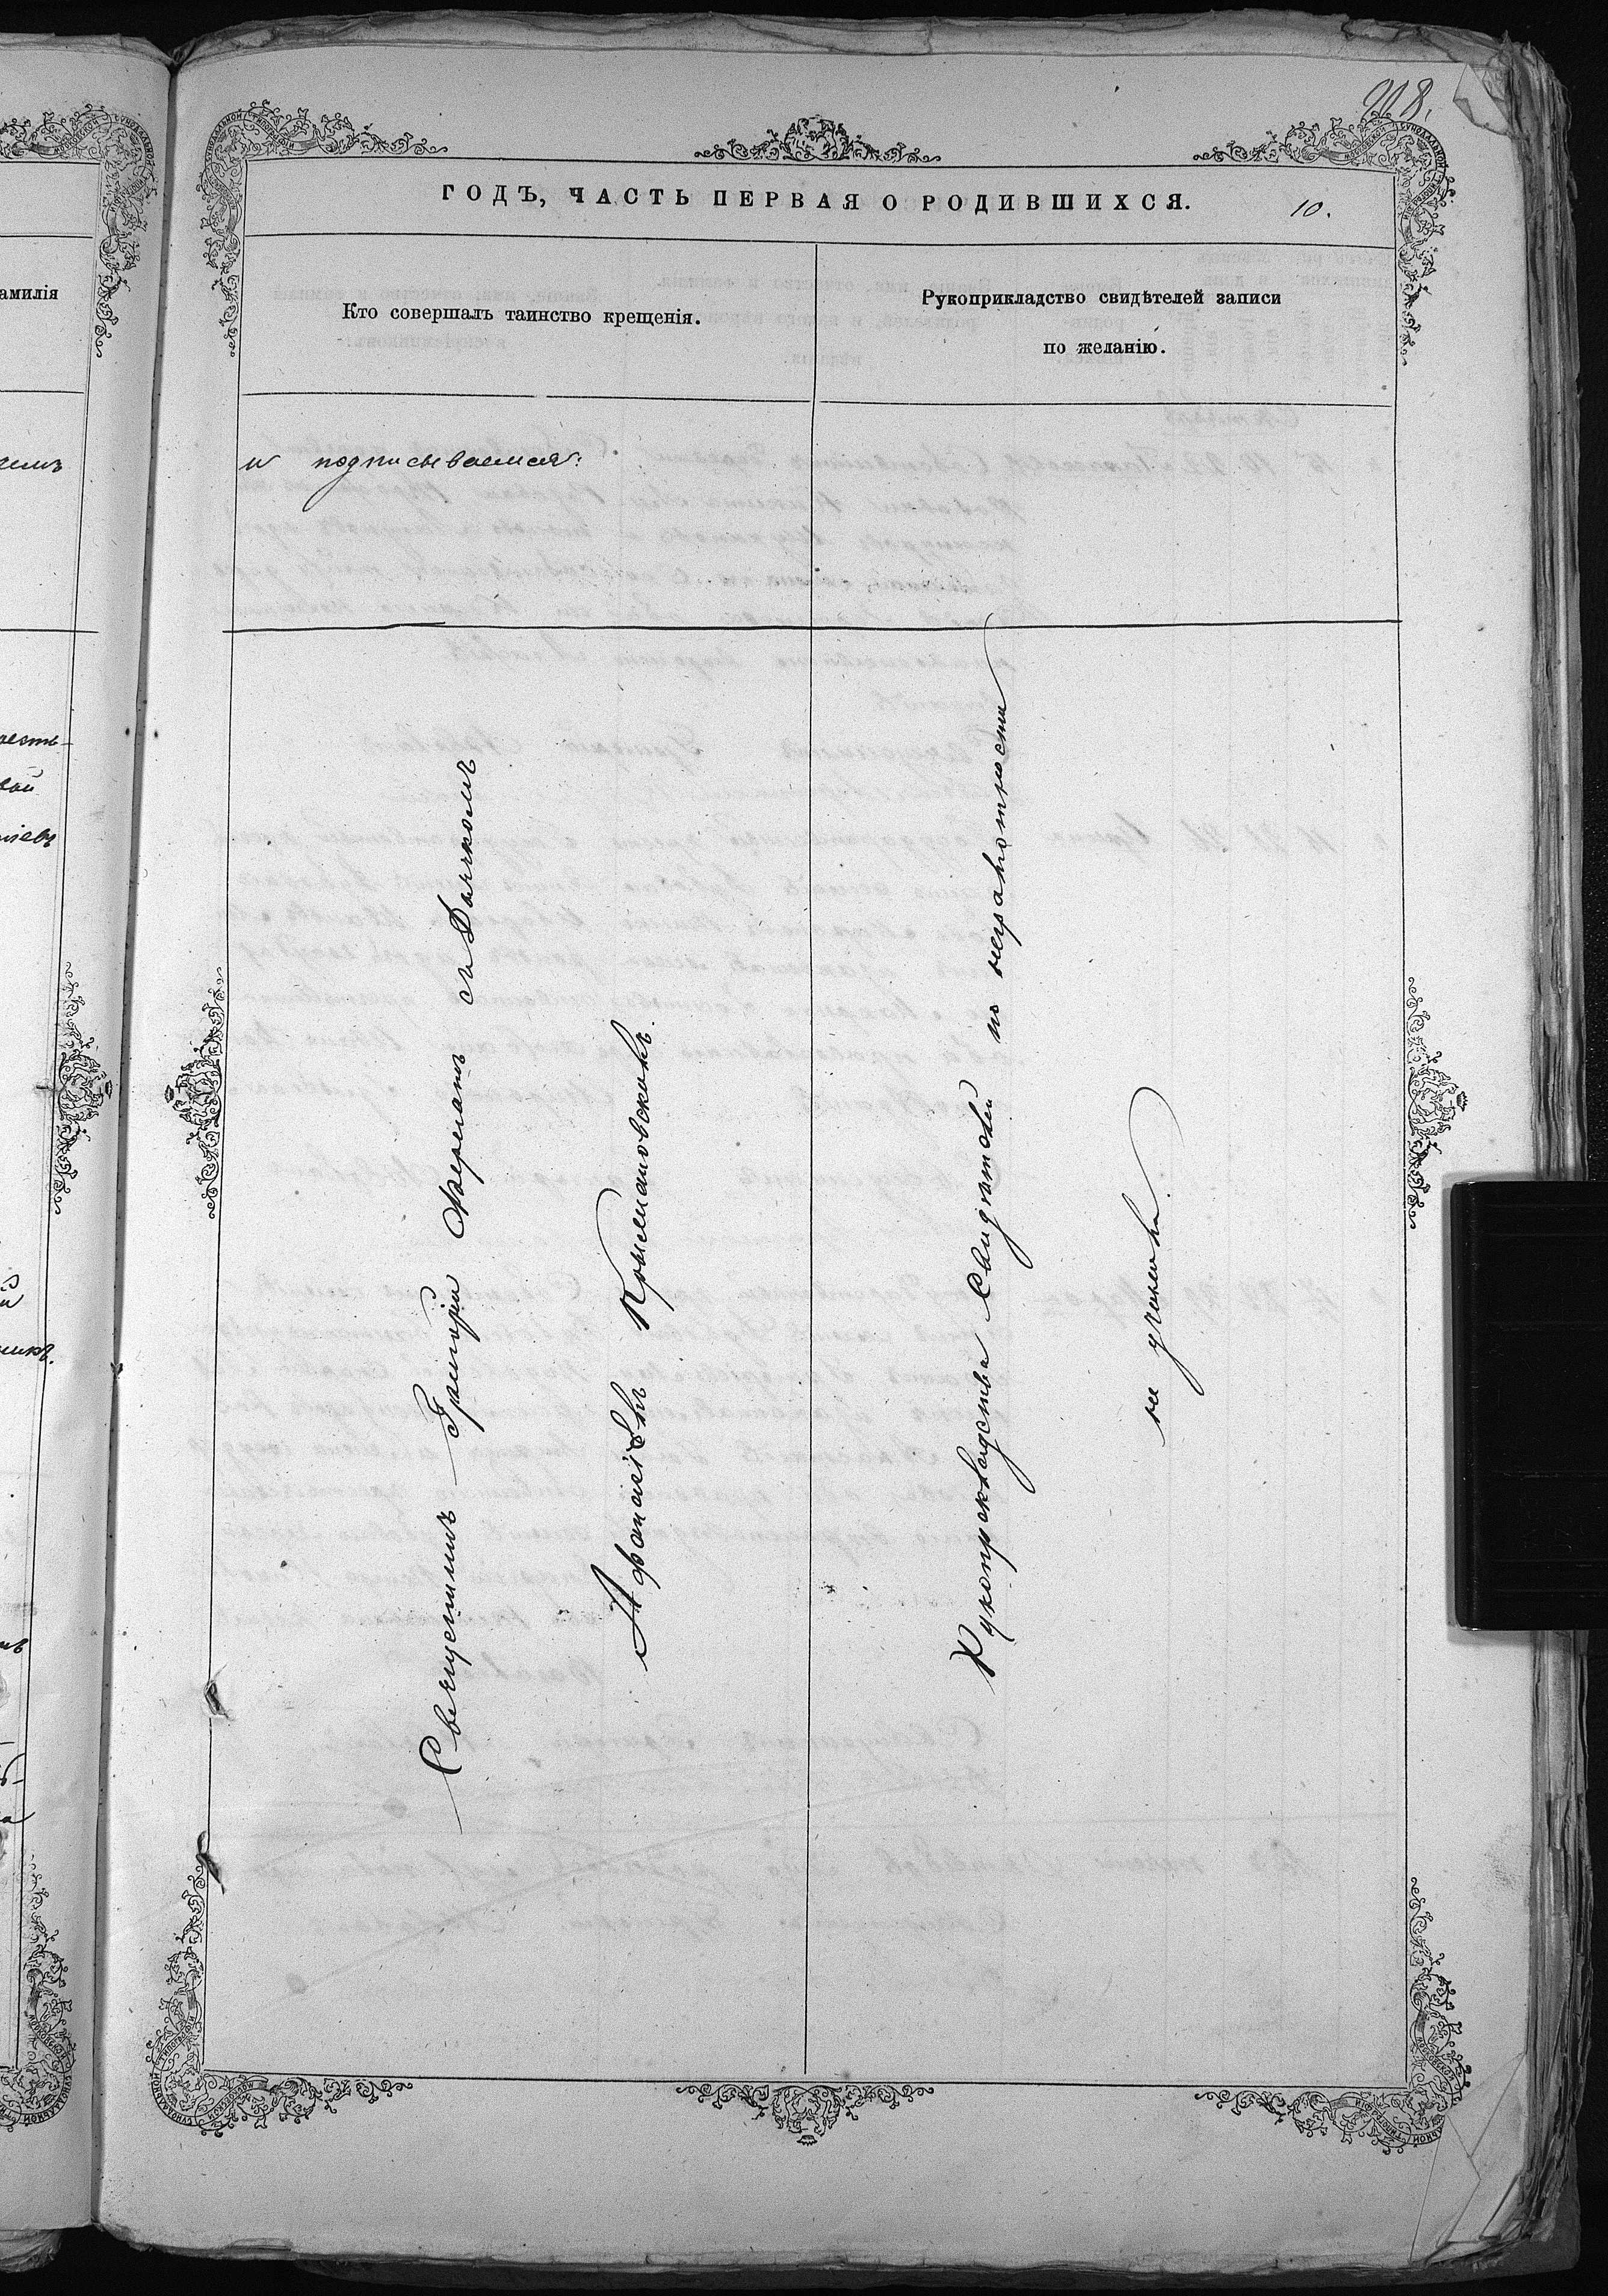 918.
ГОДЪ, ЧАСТЬ ПЕРВАЯ О РОДИВШИХСЯ.
10.
амилія
Кто совершалъ таинство крещенія.
Рукоприкладство свидѣтелей записи
по желанію.
и подписываемся:
Священникъ Григорій съ Дьячкомъ
Афанасіевъ
Рукопрекладства Свидѣтелей по неграмотности
не учинено.